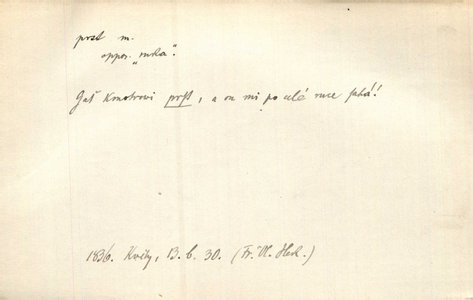 prst m.
oppos. „ruka".
Gať Kmotrovi prst, a on mi po celé ruce sahá!
1836. Květy, B. b. 30. (Fr. Vl. Hek.)